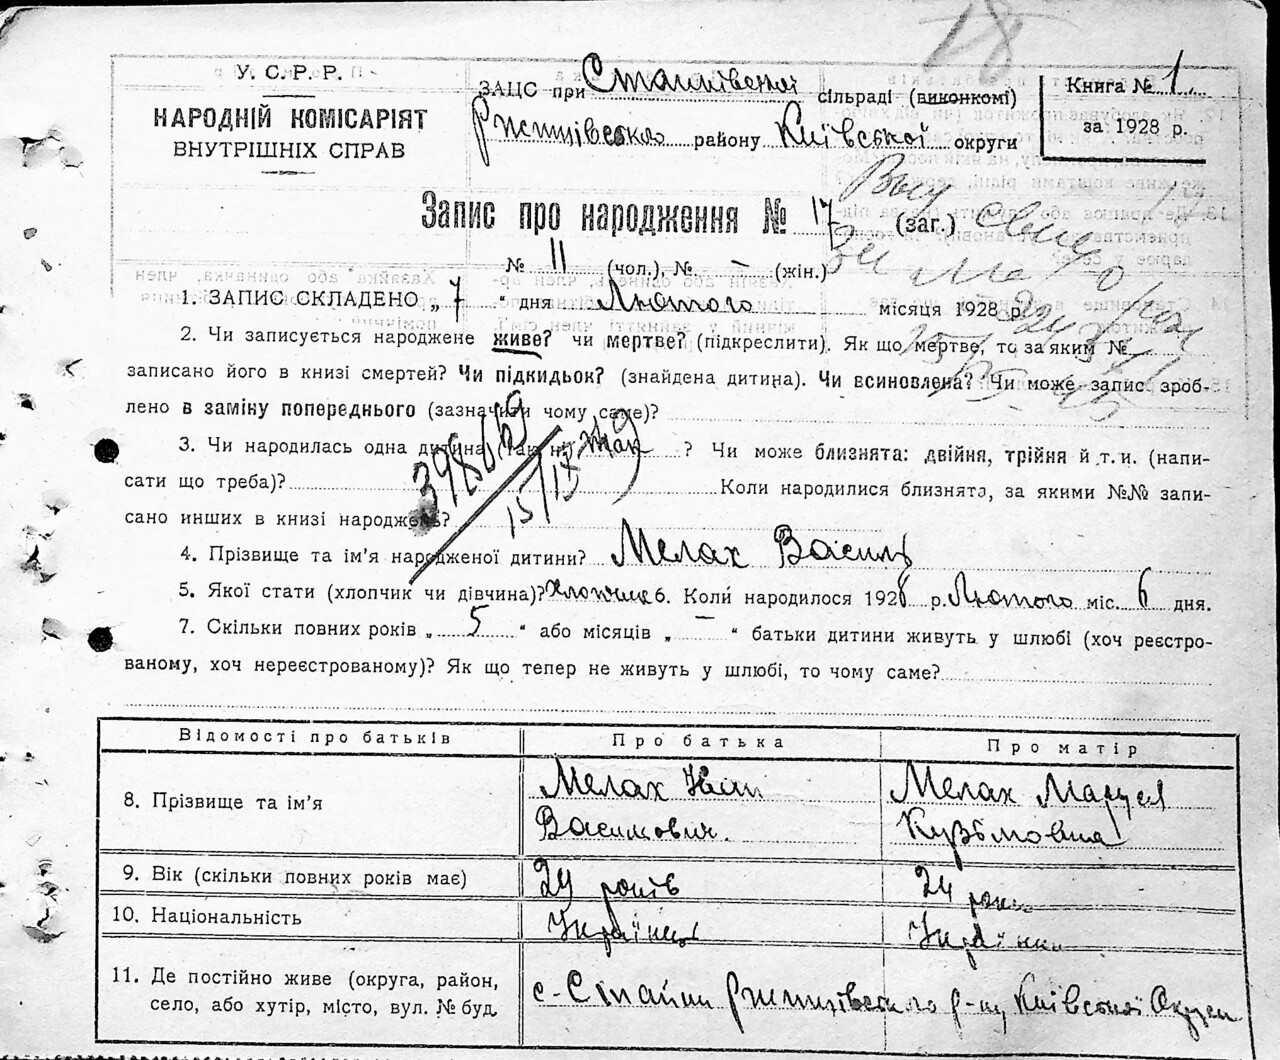 У. С. Р. Р.
НАРОДНІЙ КОМІСАРІЯТ
ВНУТРІШНІХ СПРАВ
ЗАЦС при Стайківській сільраді (виконкомі)
Ржищівського району Київської округи
Книга № 1
за 1928 р.
Запис про народження № 17 (заг.)
№ 11 (чол.), № – (жін.)
1. ЗАПИС СКЛАДЕНО „ 7 “ дня Лютого місяця 1928 р.
2. Чи записується народжене живе? чи мертве? (підкреслити). Як що мертве, то за яким №
записано його в книзі смертей? Чи підкидьок? (знайдена дитина). Чи всиновлена? Чи може запис зроб-
лено в заміну попереднього (зазначити чому саме)?
3. Чи народилась одна дитина (так ні) так ? Чи може близнята: двійня, трійня й т. и. (напи-
сати що треба)? Коли народилися близнята, за якими №№ запи-
сано инших в книзі народжень?
398669
15/IX
4. Прізвище та ім'я народженої дитини? Мелах Василь
5. Якої стати (хлопчик чи дівчина)? хлопчик 6. Коли народилося 1928 р. Лютого міс. 6 дня.
7. Скільки повних років „ 5 “ або місяців „ – “ батьки дитини живуть у шлюбі (хоч реєстро-
ваному, хоч нереєстрованому)? Як що тепер не живуть у шлюбі, то чому саме?
Відомості про батьків Про батька Про матір
8. Прізвище та ім'я Мелах Василович Мелах Маруся Кузьмовна
9. Вік (скільки повних років має) 29 років 24 роки
10. Національність Українець Українка
11. Де постійно живе (округа, район,
село, або хутір, місто, вул. № буд.
с. Стайки Ржищівського р-ну Київської Округи